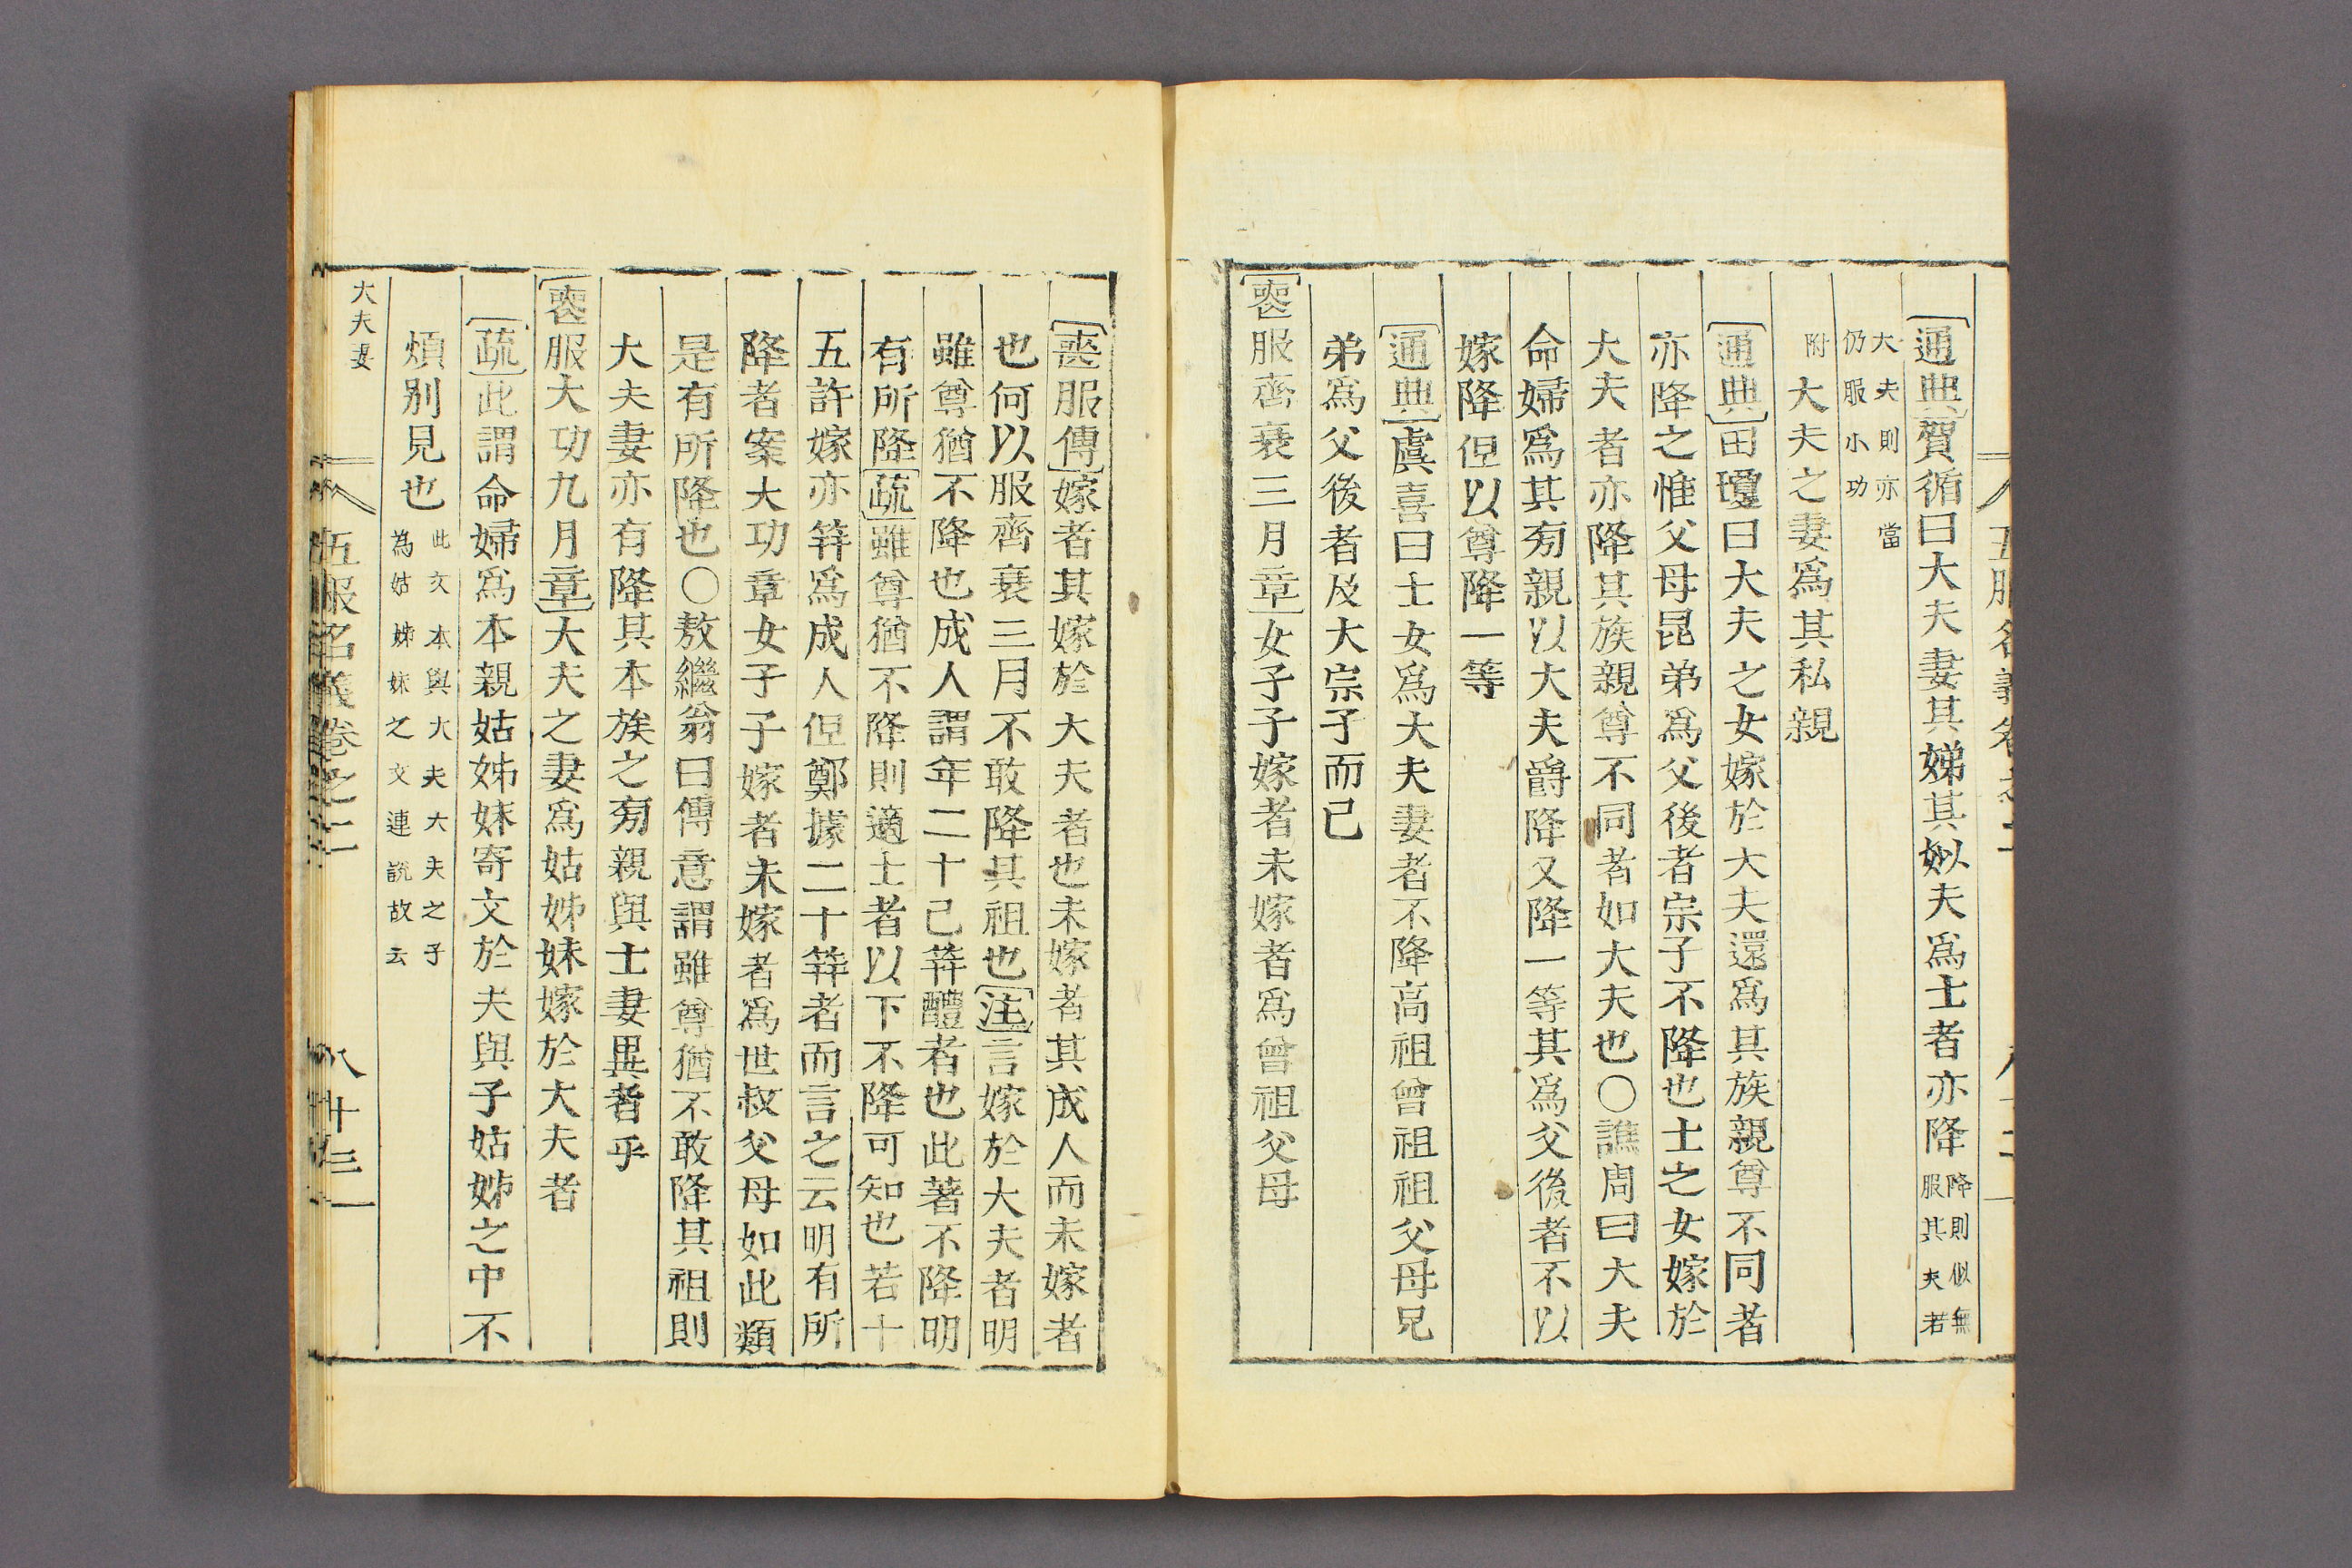 通典賀循曰大夫妻其娣其姒夫爲士者亦降降則似無
服其夫若
大夫則亦當
仍服小功
附大夫之妻爲其私親
通典田瓊曰大夫之女嫁於大夫還爲其族親尊不同者
亦降之惟父母昆弟爲父後者宗子不降也士之女嫁於
大夫者亦降其族親尊不同者如大夫也〇譙周曰大夫
命婦爲其旁親以大夫爵降又降一等其爲父後者不以
嫁降但以尊降一等
通典虞喜曰士女爲大夫妻者不降高祖曾祖祖父母兄
弟爲父後者及大宗子而已
喪服齊衰三月章女子子嫁者未嫁者爲曾祖父母
喪服傳嫁者其嫁於大夫者也未嫁者其成人而未嫁者
也何以服齊衰三月不敢降其祖也注言嫁於大夫者明
雖尊猶不降也成人謂年二十已筓醴者也此著不降明
有所降疏雖尊猶不降則適士者以下不降可知也若十
五許嫁亦筓爲成人但鄭據二十筓者而言之云明有所
降者案大功章女子子嫁者未嫁者爲世叔父母如此類
是有所降也〇敖繼翁曰傳意謂雖尊猶不敢降其祖則
大夫妻亦有降其本族之旁親與士妻異者乎
喪服大功九月章大夫之妻爲姑姊妹嫁於大夫者
疏此謂命婦爲本親姑姊妹寄文於夫與子姑姊之中不
煩別見也此文本與大夫大夫之子
為姑姊妹之文連説故云
大夫妻
五服名義卷之二
八十三